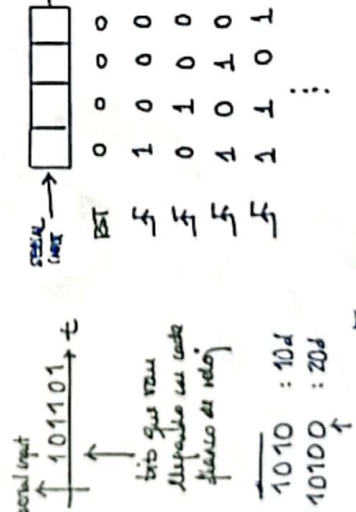 serial input
101101 t
bits que van
llegando en cada
flanco de reloj
1010 : 10d
10100 : 20d
serial input
RST 0 0 0 0
1 0 0 0
0 1 0 0
1 0 1 0
1 1 0 1